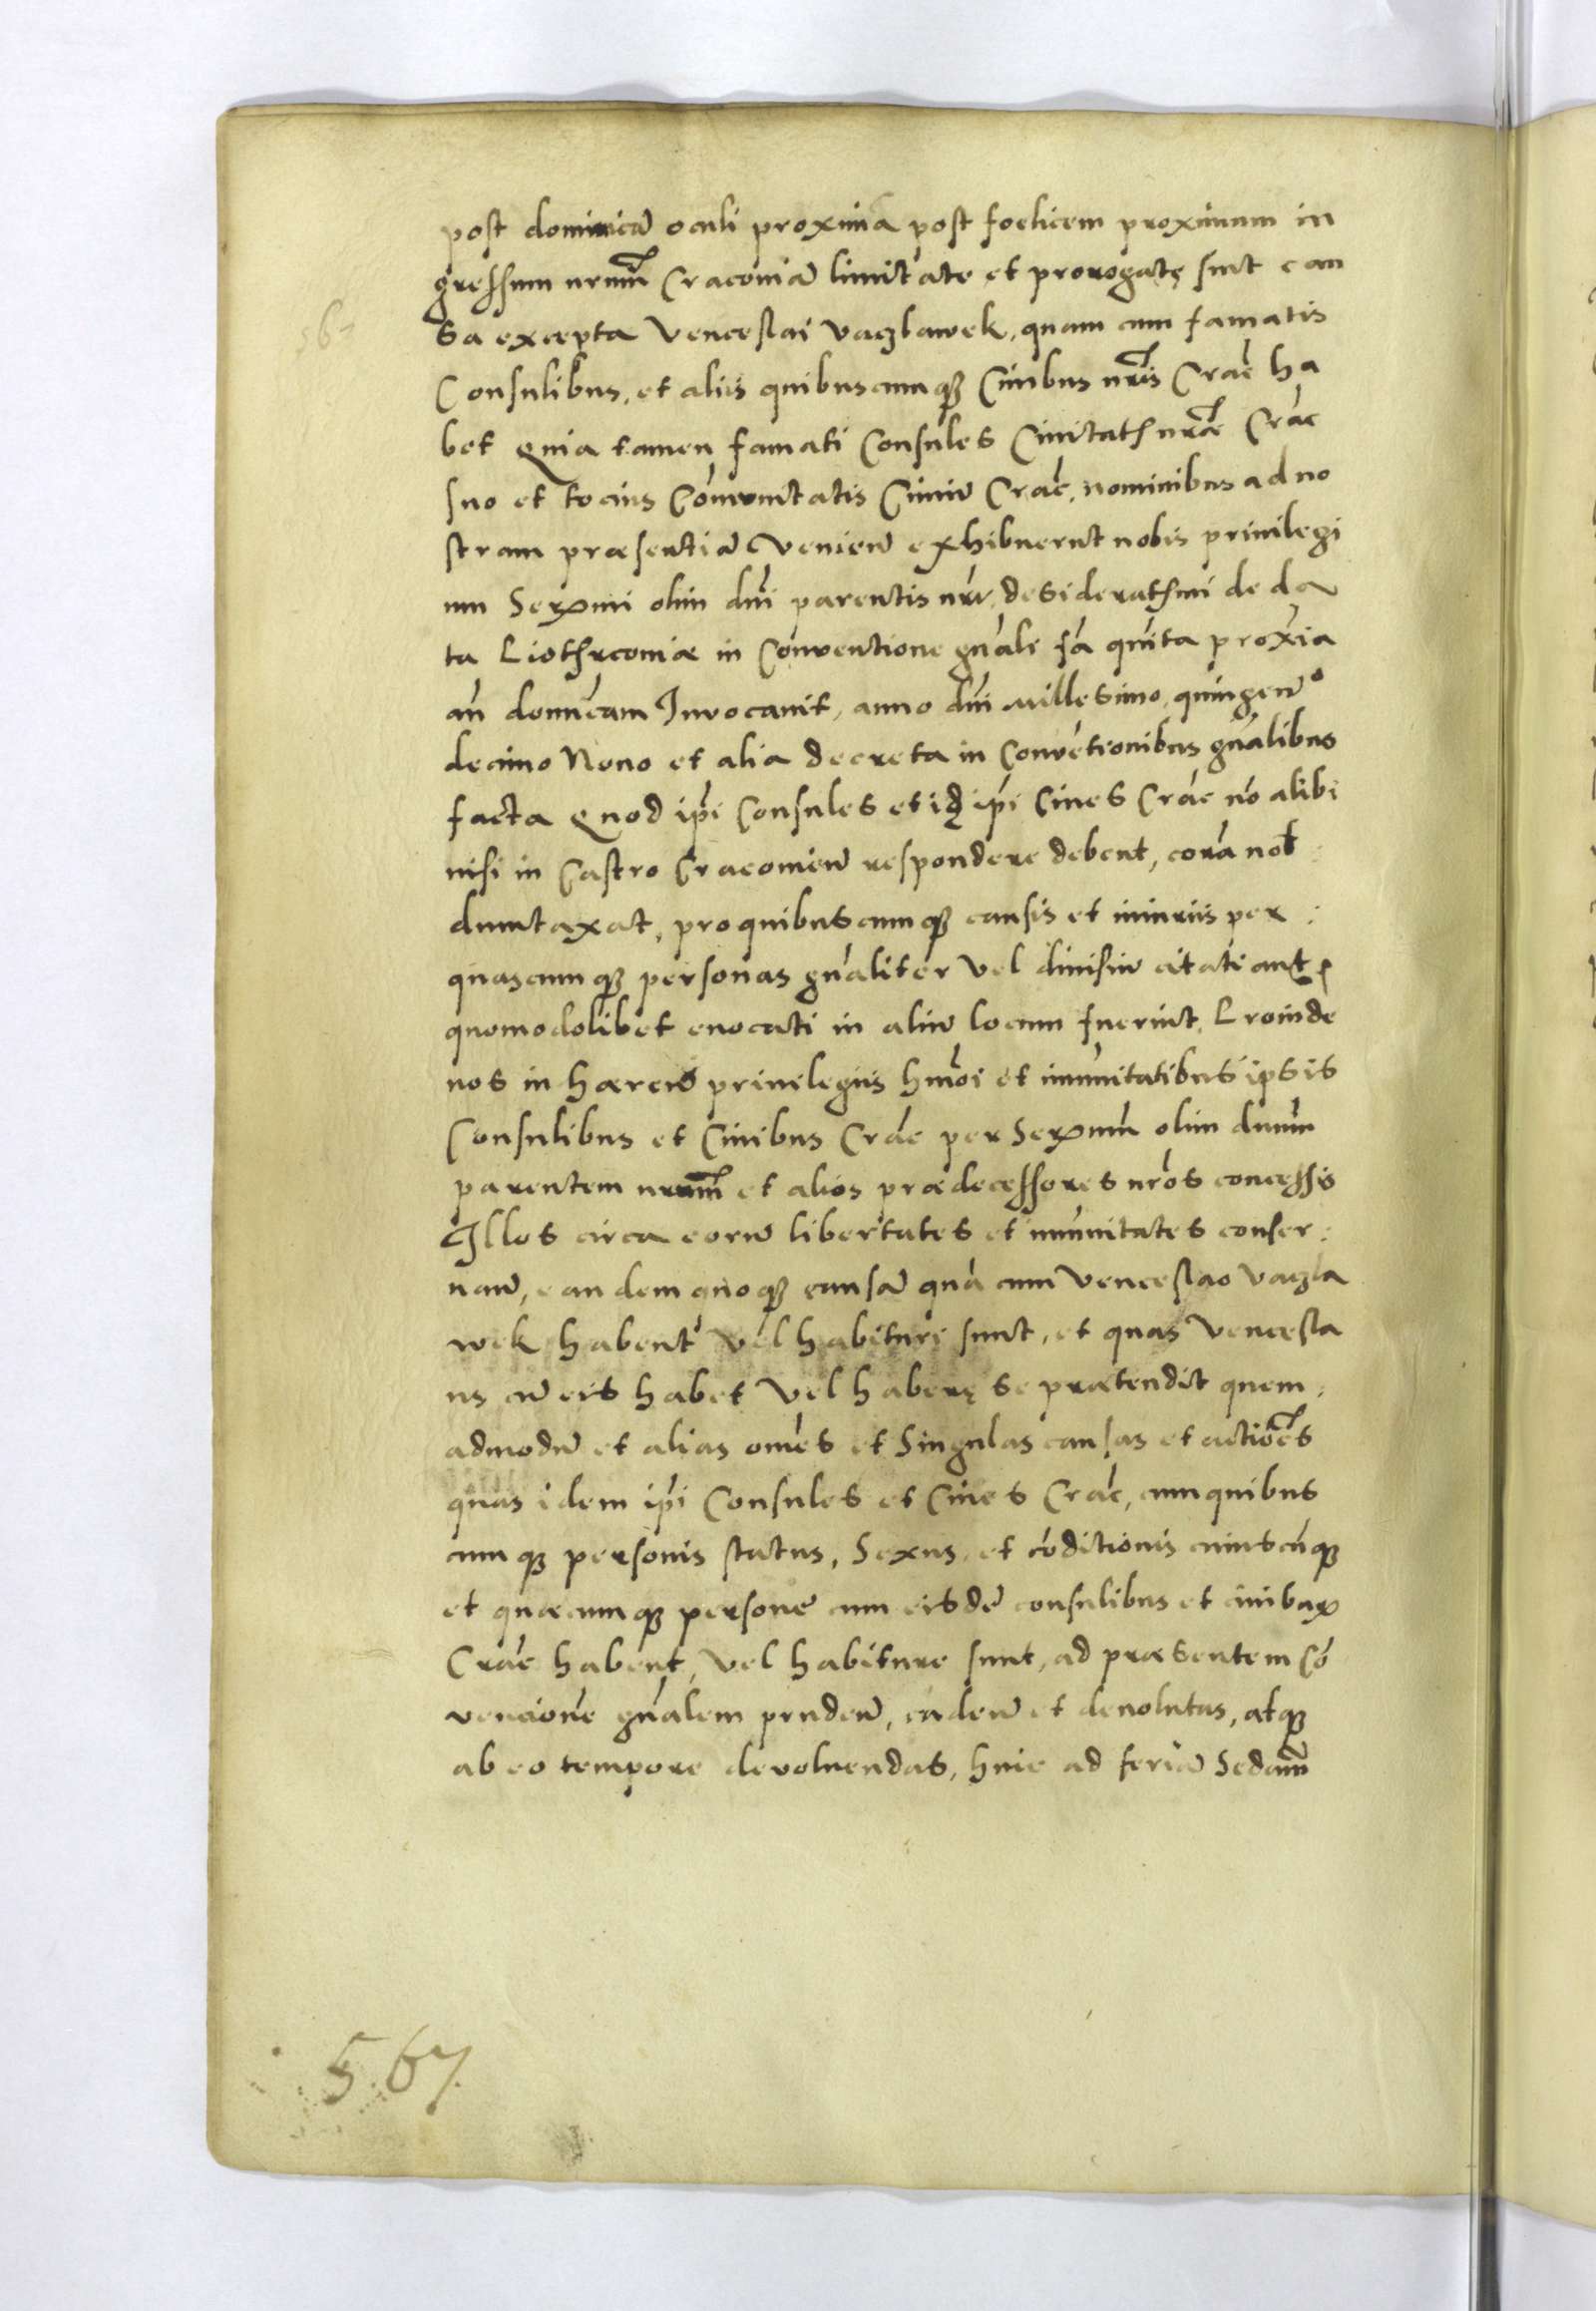 post dominicā oculi proximā post foelicem proximum in
gressum nrum̄ Cracoviā limitate et prorogatę sunt cau
sa excepta Venceslai vaczlawek, quam cum famatis
Consulibus, et aliis quibuscumqȝ Civibus nr̄is Crac̄ ha
bet Quia tamen famati Consules Civitatis nr̄ae Crac̄
suo et tocius Cōmunitatis Civiū Crac̄, nominibus ad no
stram præsentiā Venieñ exhibuerunt nobis privilegi
um Serᵐⁱ olim dn̄i parentis nr̄i, desideratissimi de da
ta Piothrcoviæ in Conventione gn̄ali fa quinta proxīa
an̄ domīcam Invocavit, anno dn̄i Millesimo, quingenᵒ
decimo Nono et alia decreta in Convētionibus gn̄alibus
facta Quod ip̄i Consules et ip̄i Cives Crac̄ nō alibi
nisi in Castro Cracovieñ respondere debent, corā nob
duntaxat, pro quibuscumqȝ causis et iniuriis per
quascumqȝ personas gn̄aliter vel divisim citati aut
quomodolibet evocati in aliū locum fuerint, Proinde
nos in hæreñ privilegiis hmōi et imunitatibus ipsis
Consulibus et Civibus Crac̄ per Serᵐum olim dnum̄
parentem nrum̄ et alios prædecessores nr̄os concessis
Illos circa eorū libertates et imunitates conser
vañ, eandem quoqȝ causā quā cum Venceslao Vaczla
wek habent vel habituri sunt, et quas Vencesla
us cū eis habet vel haberę se prætendit quem
admodū et alias om̄es et Singulas causas et actiōes
quas idem ip̄i Consules et Cives Crac̄, cum quibus
cumqȝ personis status, Sexus, et cōditionis cuiuscūqȝ
et quæcumqȝ personę cum eisdē consulibus et civibus
Crac̄ habent, vel habiture sunt, ad præsentem Cō
vencionē gn̄alem pendeñ, cadeñ et devolutas, atqȝ
ab eo tempore devolvendas, huic ad feriā Secdam̄
567